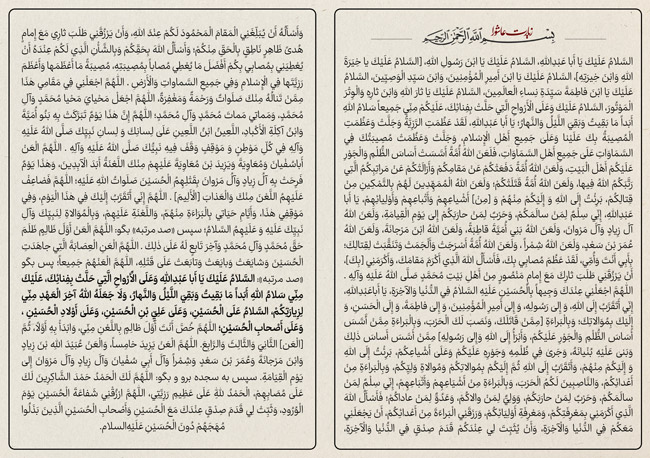 زیارت عاشورا
بِسْمِ اللَّهِ الرَّحْمَنِ الرَّحِيمِ
السَّلامُ عَلَيْكَ يَا أَبا عَبْدِاللهِ، السَّلامُ عَلَيْكَ يَا ابْنَ رَسُولِ اللهِ، [السَّلامُ عَلَيْكَ يَا خِيَرَةَ
اللهِ وَابْنَ خِيَرَتِهِ]، السَّلامُ عَلَيْكَ يَا ابْنَ أَمِيرِ الْمُؤْمِنِينَ، وَابْنَ سَيِّدِ الْوَصِيِّينَ، السَّلامُ
عَلَيْكَ يَا ابْنَ فَاطِمَةَ سَيِّدَةِ نِساءِ الْعَالَمِينَ، السَّلامُ عَلَيْكَ يَا ثَارَ اللهِ وَابْنَ ثَارِهِ وَالْوِتْرَ
الْمَوْتُورَ، السَّلامُ عَلَيْكَ وَعَلَى الْأَرْوَاحِ الَّتِي حَلَّتْ بِفِنَائِكَ، عَلَيْكُمْ مِنِّي جَمِيعاً سَلامُ اللهِ
أَبَداً مَا بَقِيتُ وَبَقِيَ اللَّيْلُ وَالنَّهَارُ؛ يَا أَبا عَبْدِاللهِ، لَقَدْ عَظُمَتِ الرَّزِيَّةُ وَجَلَّتْ وَعَظُمَتِ
الْمُصِيبَةُ بِكَ عَلَيْنَا وَعَلَى جَمِيعِ أَهْلِ الْإِسْلامِ، وَجَلَّتْ وَعَظُمَتْ مُصِيبَتُكَ فِي
السَّمَاوَاتِ عَلَى جَمِيعِ أَهْلِ السَّمَاوَاتِ، فَلَعَنَ اللهُ أُمَّةً أَسَّسَتْ أَسَاسَ الظُّلْمِ وَالْجَوْرِ
عَلَيْكُمْ أَهْلَ الْبَيْتِ، وَلَعَنَ اللهُ أُمَّةً دَفَعَتْكُمْ عَنْ مَقَامِكُمْ وَأَزَالَتْكُمْ عَنْ مَرَاتِبِكُمُ الَّتِي
رَتَّبَكُمُ اللهُ فِيهَا، وَلَعَنَ اللهُ أُمَّةً قَتَلَتْكُمْ، وَلَعَنَ اللهُ الْمُمَهِّدِينَ لَهُمْ بِالتَّمْكِينِ مِنْ
قِتَالِكُمْ، بَرِئْتُ إِلَى اللهِ وَإِلَيْكُمْ مِنْهُمْ وَ [مِنْ] أَشْيَاعِهِمْ وَأَتْبَاعِهِمْ وَأَوْلِيَائِهِمْ، يَا أَبا
عَبْدِاللهِ، إِنِّي سِلْمٌ لِمَنْ سَالَمَكُمْ، وَحَرْبٌ لِمَنْ حَارَبَكُمْ إِلَى يَوْمِ الْقِيَامَةِ، وَلَعَنَ اللهُ
آلَ زِيَادٍ وَآلَ مَرْوَانَ، وَلَعَنَ اللهُ بَنِي أُمَيَّةَ قَاطِبَةً، وَلَعَنَ اللهُ ابْنَ مَرْجَانَةَ، وَلَعَنَ اللهُ
عُمَرَ بْنَ سَعْدٍ، وَلَعَنَ اللهُ شِمْراً ، وَلَعَنَ اللهُ أُمَّةً أَسْرَجَتْ وَأَلْجَمَتْ وَتَنَقَّبَتْ لِقِتَالِكَ؛
بِأَبِي أَنْتَ وَأُمِّي، لَقَدْ عَظُمَ مُصَابِي بِكَ، فَأَسْأَلُ اللهَ الَّذِي أَكْرَمَ مَقَامَكَ، وَأَكْرَمَنِي [بِكَ]،
أَنْ يَرْزُقَنِي طَلَبَ ثَارِكَ مَعَ إِمَامٍ مَنْصُورٍ مِنْ أَهْلِ بَيْتِ مُحَمَّدٍ صَلَّى اللهُ عَلَيْهِ وَآلِهِ .
اللَّهُمَّ اجْعَلْنِي عِنْدَكَ وَجِيهاً بِالْحُسَيْنِ عَلَيْهِ السَّلامُ فِي الدُّنْيَا وَالْآخِرَةِ، يَا أَباعَبْدِاللهِ،
إِنِّي أَتَقَرَّبُ إِلَى اللهِ، وَ إِلَى رَسُولِهِ، وَ إِلَى أَمِيرِ الْمُؤْمِنِينَ، وَ إِلَى فَاطِمَةَ، وَ إِلَى الْحَسَنِ، وَ
إِلَيْكَ بِمُوَالاتِكَ؛ وَبِالْبَرَاءَةِ [مِمَّنْ قَاتَلَكَ، وَنَصَبَ لَكَ الْحَرْبَ، وَبِالْبَرَاءَةِ مِمَّنْ أَسَّسَ
أَسَاسَ الظُّلْمِ وَالْجَوْرِ عَلَيْكُمْ، وَأَبْرَأُ إِلَى اللهِ وَإِلَى رَسُولِهِ] مِمَّنْ أَسَّسَ أَسَاسَ ذَلِكَ
وَبَنَى عَلَيْهِ بُنْيَانَهُ، وَجَرَى فِي ظُلْمِهِ وَجَوْرِهِ عَلَيْكُمْ وَعَلَى أَشْيَاعِكُمْ، بَرِئْتُ إِلَى اللهِ
وَ إِلَيْكُمْ مِنْهُمْ، وَأَتَقَرَّبُ إِلَى اللهِ ثُمَّ إِلَيْكُمْ بِمُوَالاتِكُمْ وَمُوَالاةِ وَلِيِّكُمْ، وَبِالْبَرَاءَةِ مِنْ
أَعْدَائِكُمْ، وَالنَّاصِبِينَ لَكُمُ الْحَرْبَ، وَبِالْبَرَاءَةِ مِنْ أَشْيَاعِهِمْ وَأَتْبَاعِهِمْ، إِنِّي سِلْمٌ لِمَنْ
سَالَمَكُمْ، وَحَرْبٌ لِمَنْ حَارَبَكُمْ، وَوَلِيٌّ لِمَنْ وَالاكُمْ، وَعَدُوٌّ لِمَنْ عَادَاكُمْ؛ فَأَسْأَلُ اللهَ
الَّذِي أَكْرَمَنِي بِمَعْرِفَتِكُمْ، وَمَعْرِفَةِ أَوْلِيَائِكُمْ، وَرَزَقَنِي الْبَرَاءَةَ مِنْ أَعْدَائِكُمْ، أَنْ يَجْعَلَنِي
مَعَكُمْ فِي الدُّنْيَا وَالْآخِرَةِ، وَأَنْ يُثَبِّتَ لِي عِنْدَكُمْ قَدَمَ صِدْقٍ فِي الدُّنْيَا وَالْآخِرَةِ،
وَأَسْأَلُهُ أَنْ يُبَلِّغَنِي الْمَقَامَ الْمَحْمُودَ لَكُمْ عِنْدَ اللهِ، وَأَنْ يَرْزُقَنِي طَلَبَ ثَارِي مَعَ إِمَامِ
هُدىً ظَاهِرٍ نَاطِقٍ بِالْحَقِّ مِنْكُمْ؛ وَأَسْأَلُ اللهَ بِحَقِّكُمْ وَبِالشَّأْنِ الَّذِي لَكُمْ عِنْدَهُ أَنْ
يُعْطِيَنِي بِمُصَابِي بِكُمْ أَفْضَلَ مَا يُعْطِي مُصَاباً بِمُصِيبَتِهِ، مُصِيبَةً مَا أَعْظَمَهَا وَأَعْظَمَ
رَزِيَّتَهَا فِي الْإِسْلامِ وَفِي جَمِيعِ السَّمَاوَاتِ وَالْأَرْضِ . اللَّهُمَّ اجْعَلْنِي فِي مَقَامِي هَذَا
مِمَّنْ تَنَالُهُ مِنْكَ صَلَوَاتٌ وَرَحْمَةٌ وَمَغْفِرَةٌ، اللَّهُمَّ اجْعَلْ مَحْيَايَ مَحْيَا مُحَمَّدٍ وَآلِ
مُحَمَّدٍ، وَمَمَاتِي مَمَاتَ مُحَمَّدٍ وَآلِ مُحَمَّدٍ؛ اللَّهُمَّ إِنَّ هَذَا يَوْمٌ تَبَرَّكَتْ بِهِ بَنُو أُمَيَّةَ
وَابْنُ آكِلَةِ الْأَكْبَادِ، اللَّعِينُ ابْنُ اللَّعِينِ عَلَى لِسَانِكَ وَ لِسَانِ نَبِيِّكَ صَلَّى اللهُ عَلَيْهِ
وَآلِهِ فِي كُلِّ مَوْطِنٍ وَ مَوْقِفٍ وَقَفَ فِيهِ نَبِيُّكَ صَلَّى اللهُ عَلَيْهِ وَآلِهِ . اللَّهُمَّ الْعَنْ
أَباسُفْيَانَ وَمُعَاوِيَةَ وَيَزِيدَ بْنَ مُعَاوِيَةَ عَلَيْهِمْ مِنْكَ اللَّعْنَةُ أَبَدَ الْآبِدِينَ، وَهَذَا يَوْمٌ
فَرِحَتْ بِهِ آلُ زِيَادٍ وَآلُ مَرْوَانَ بِقَتْلِهِمُ الْحُسَيْنَ صَلَوَاتُ اللهِ عَلَيْهِ؛ اللَّهُمَّ فَضَاعِفْ
عَلَيْهِمُ اللَّعْنَ مِنْكَ وَالْعَذَابَ [الْأَلِيمَ] . اللَّهُمَّ إِنِّي أَتَقَرَّبُ إِلَيْكَ فِي هَذَا الْيَوْمِ، وَفِي
مَوْقِفِي هَذَا، وَأَيَّامِ حَيَاتِي بِالْبَرَاءَةِ مِنْهُمْ، وَاللَّعْنَةِ عَلَيْهِمْ، وَبِالْمُوَالاةِ لِنَبِيِّكَ وَآلِ
نَبِيِّكَ عَلَيْهِ وَ عَلَيْهِمُ السَّلامُ؛ سپس «صد مرتبه» بگو: اللَّهُمَّ الْعَنْ أَوَّلَ ظَالِمٍ ظَلَمَ
حَقَّ مُحَمَّدٍ وَآلِ مُحَمَّدٍ وَآخِرَ تَابِعٍ لَهُ عَلَى ذَلِكَ . اللَّهُمَّ الْعَنِ الْعِصَابَةَ الَّتِي جَاهَدَتِ
الْحُسَيْنَ وَشَايَعَتْ وَبَايَعَتْ وَتَابَعَتْ عَلَى قَتْلِهِ، اللَّهُمَّ الْعَنْهُمْ جَمِيعاً؛ پس بگو
«صد مرتبه»: السَّلامُ عَلَيْكَ يَا أَبا عَبْدِاللهِ وَعَلَى الْأَرْوَاحِ الَّتِي حَلَّتْ بِفِنَائِكَ، عَلَيْكَ
مِنِّي سَلامُ اللهِ أَبَداً مَا بَقِيتُ وَبَقِيَ اللَّيْلُ وَالنَّهَارُ، وَلَا جَعَلَهُ اللهُ آخِرَ الْعَهْدِ مِنِّي
لِزِيَارَتِكُمْ، السَّلامُ عَلَى الْحُسَيْنِ، وَعَلَى عَلِيِّ بْنِ الْحُسَيْنِ، وَعَلَى أَوْلادِ الْحُسَيْنِ ،
وَعَلَى أَصْحَابِ الْحُسَيْنِ؛ اللَّهُمَّ خُصَّ أَنْتَ أَوَّلَ ظَالِمٍ بِاللَّعْنِ مِنِّي، وَابْدَأْ بِهِ أَوَّلاً، ثُمَّ
[الْعَنِ] الثَّانِيَ وَالثَّالِثَ وَالرَّابِعَ، اللَّهُمَّ الْعَنْ يَزِيدَ خَامِساً، وَالْعَنْ عُبَيْدَ اللهِ بْنَ زِيَادٍ
وَابْنَ مَرْجَانَةَ وَعُمَرَ بْنَ سَعْدٍ وَشِمْراً وَ آلَ أَبِي سُفْيَانَ وَآلَ زِيَادٍ وَآلَ مَرْوَانَ إِلَى
يَوْمِ الْقِيَامَةِ. سپس به سجده برو و بگو: اللَّهُمَّ لَكَ الْحَمْدُ حَمْدَ الشَّاكِرِينَ لَكَ
عَلَى مُصَابِهِمْ، الْحَمْدُ لِلّهِ عَلَى عَظِيمِ رَزِيَّتِي، اللَّهُمَّ ارْزُقْنِي شَفَاعَةَ الْحُسَيْنِ يَوْمَ
الْوُرُودِ، وَثَبِّتْ لِي قَدَمَ صِدْقٍ عِنْدَكَ مَعَ الْحُسَيْنِ وَأَصْحَابِ الْحُسَيْنِ الَّذِينَ بَذَلُوا
مُهَجَهُمْ دُونَ الْحُسَيْنِ عَلَيْهِ‌السلام.